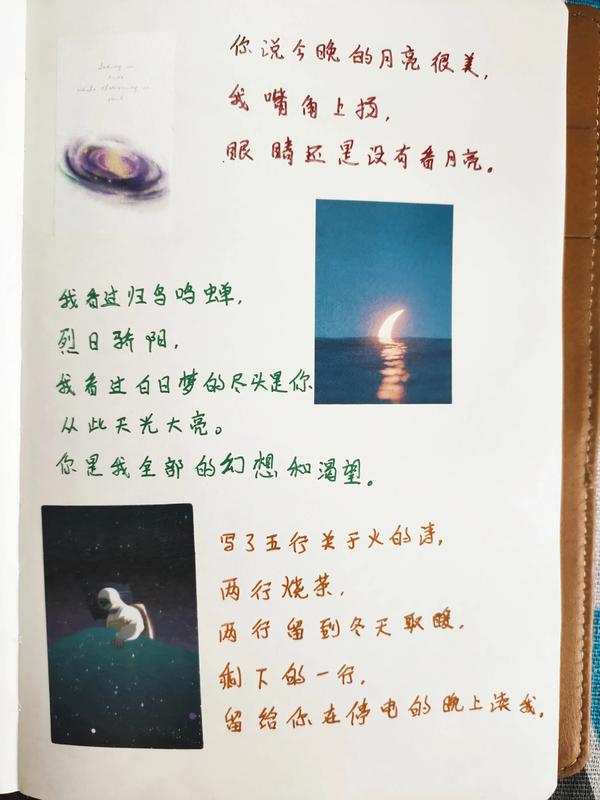 你说今晚的月亮很美,
我嘴角上扬,
眼睛还是没有看月亮。
我看过归鸟鸣蝉,
烈日骄阳,
我看过白日梦的尽头是你
从此天光大亮。
你是我全部的幻想和渴望。
写了五行关于火的诗,
两行烧茶,
两行留到冬天取暖,
剩下的一行,
留给你在停电的晚上读我。